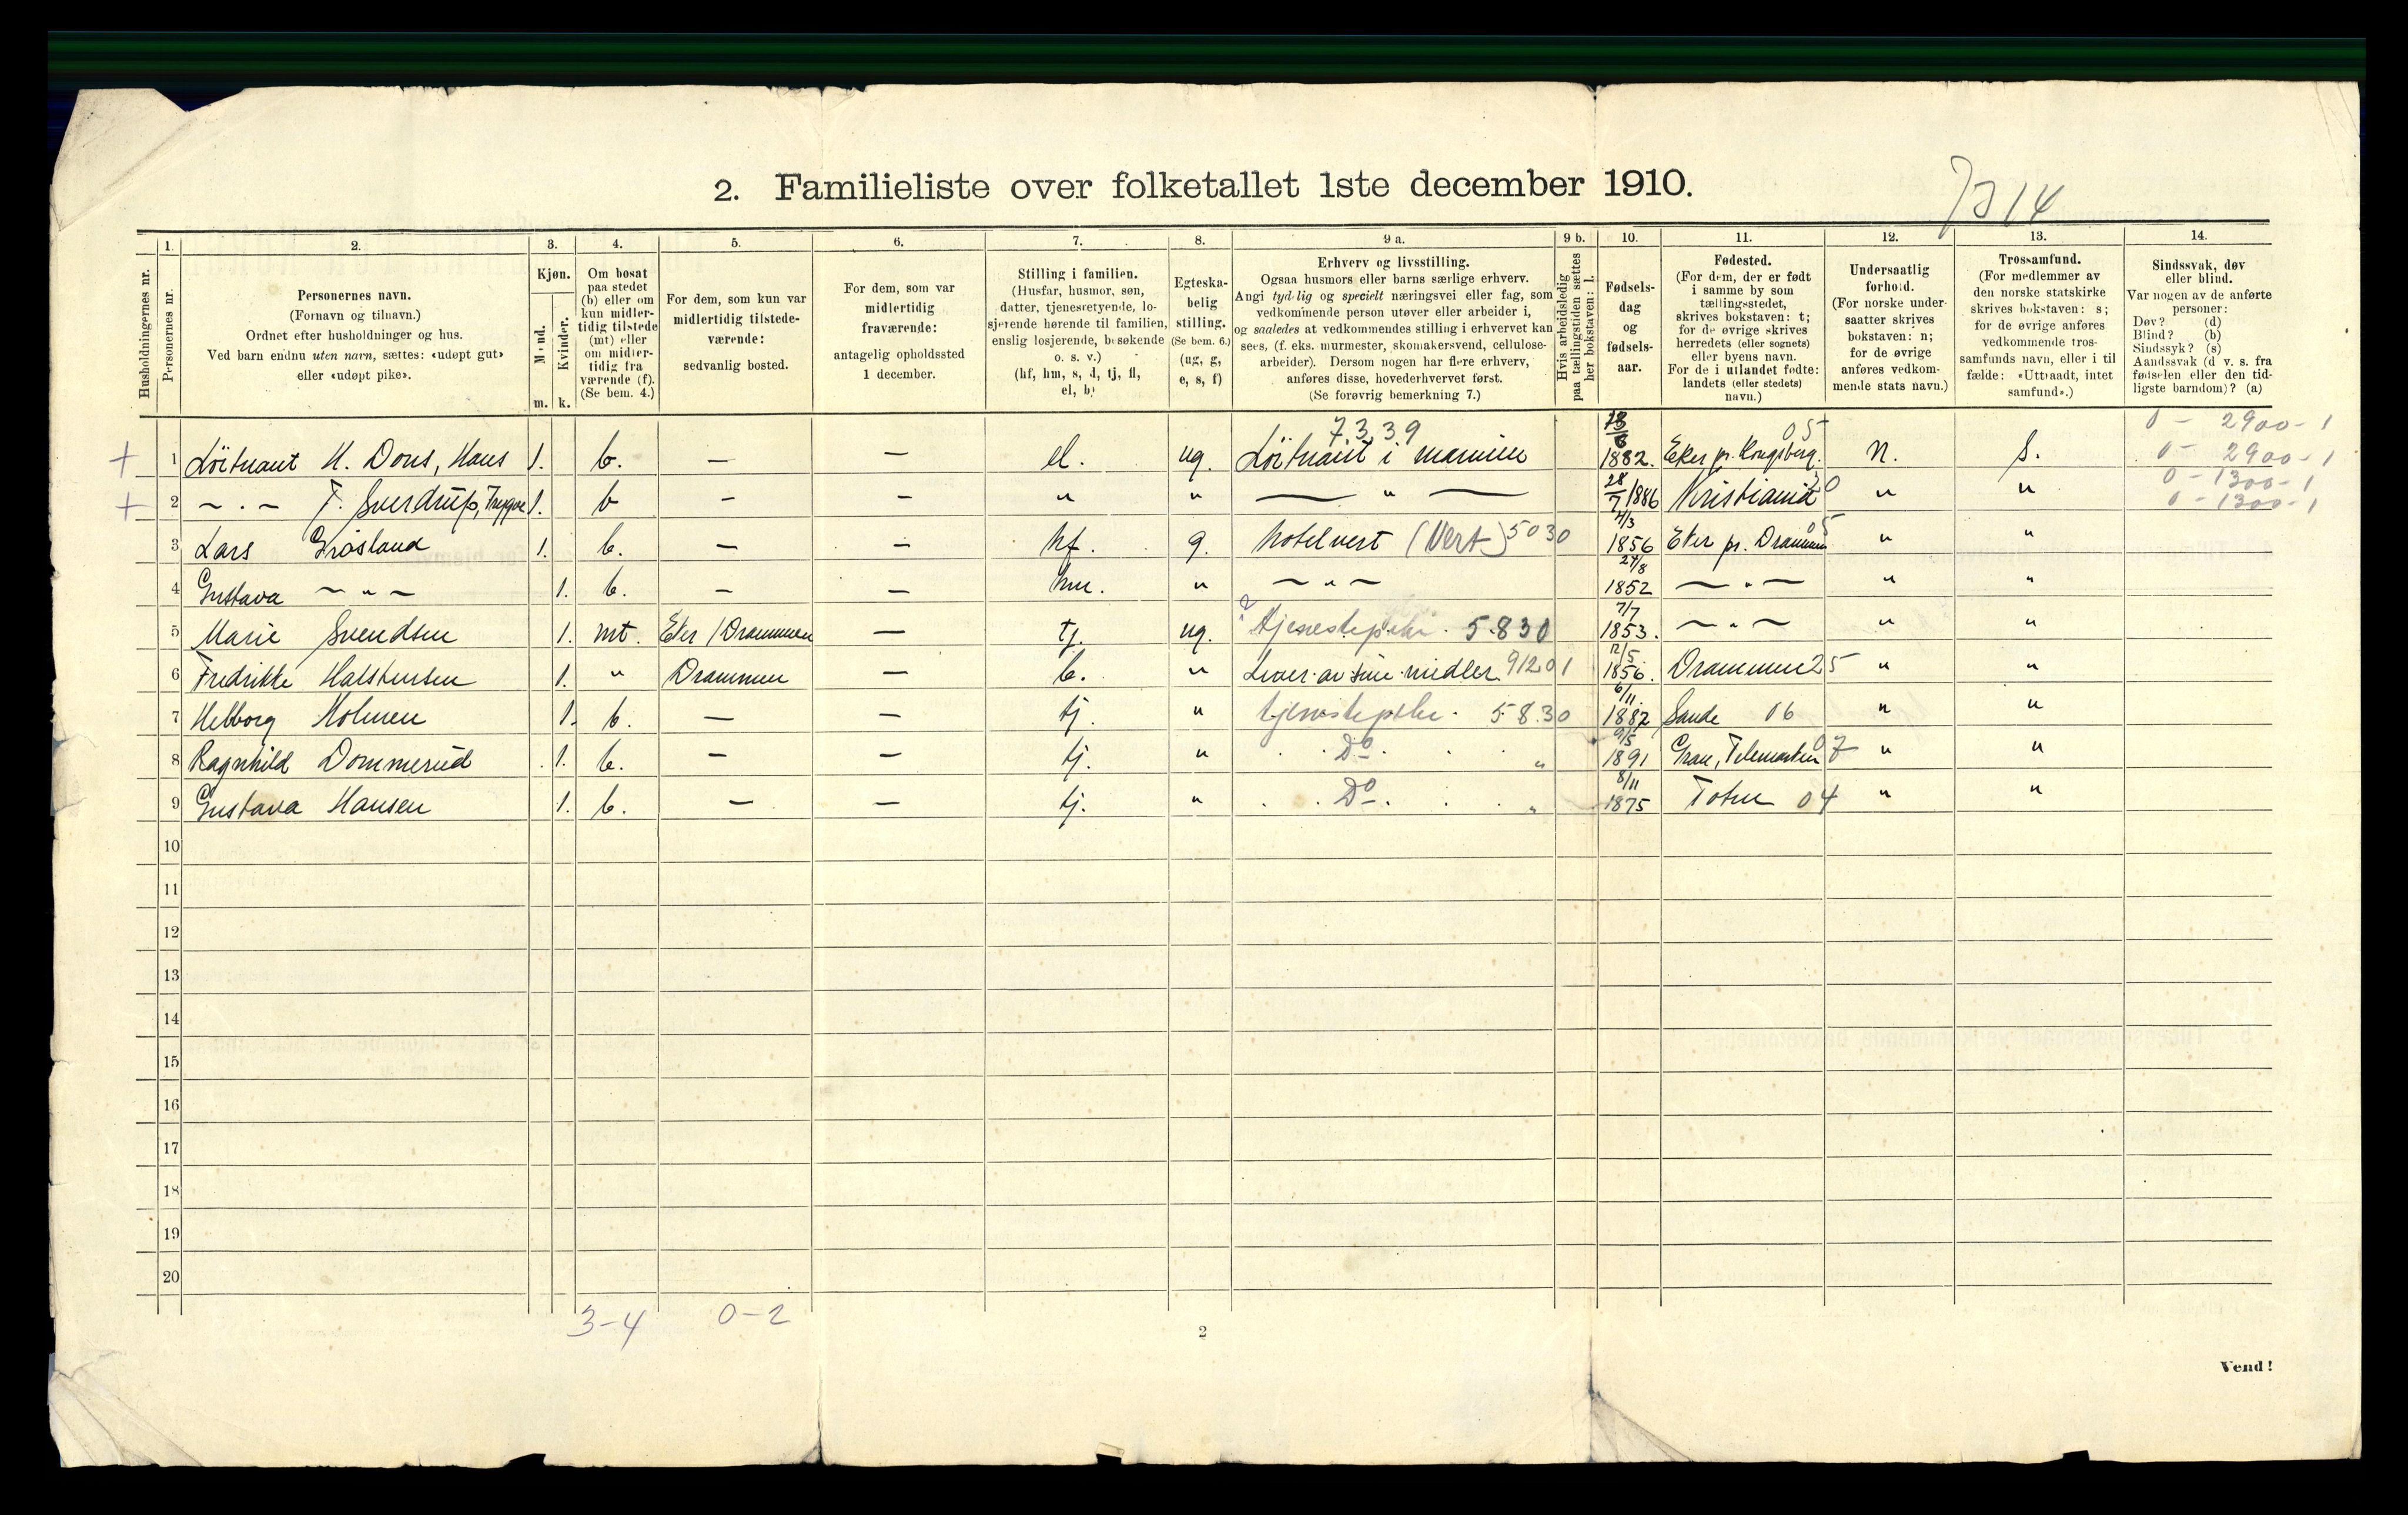 2. Familieliste over folketallet 1ste december 1910.
7314
Husholdningernes nr.
1.
Personernes nr.
2.
Personernes navn.
(Fornavn og tilnavn.)
Ordnet efter husholdninger og hus.
Ved barn endnu uten navn, sættes: «udøpt gut»
eller «udøpt pike».
3.
Kjøn.
Mænd.
Kvinder.
m. k.
4.
Om bosat
paa stedet
(b) eller om
kun midler-
tidig tilstede
(mt) eller
om midler-
tidig fra
værende (f).
(Se bem. 4.)
5.
For dem, som kun var
midlertidig tilstede-
værende:
sedvanlig bosted.
6.
For dem, som var
midlertidig
fraværende:
antagelig opholdssted
1 december.
7.
Stilling i familien.
(Husfar, husmor, søn,
datter, tjenestetyende, lo-
sjerende hørende til familien,
enslig losjerende, besøkende
o. s. v.)
(hf, hm, s, d, tj, fl,
el, b)
8.
Egteska-
belig
stilling.
(Se bem. 6.)
(ug, g,
e, s, f)
9 a.
Erhverv og livsstilling.
Ogsaa husmors eller barns særlige erhverv.
Angi tydelig og specielt næringsvei eller fag, som
vedkommende person utøver eller arbeider i,
og saaledes at vedkommendes stilling i erhvervet kan
sees, (f. eks. murmester, skomakersvend, cellulose-
arbeider). Dersom nogen har flere erhverv,
anføres disse, hovederhvervet først.
(Se forøvrig bemerkning 7.)
9 b.
Hvis arbeidsledig
paa tællingstiden sættes
her bokstaven: l.
10.
Fødsels-
dag
og
fødsels-
aar.
11.
Fødested.
(For dem, der er født
i samme by som
tællingsstedet,
skrives bokstaven: t;
for de øvrige skrives
herredets (eller sognets)
eller byens navn.
For de i utlandet fødte:
landets (eller stedets)
navn.)
12.
Undersaatlig
forhold.
(For norske under-
saatter skrives
bokstaven: n;
for de øvrige
anføres vedkom-
mende stats navn.)
13.
Trossamfund.
(For medlemmer av
den norske statskirke
skrives bokstaven: s;
for de øvrige anføres
vedkommende tros-
samfunds navn, eller i til
fælde: «Uttraadt, intet
samfund».)
14.
Sindssvak, døv
eller blind.
Var nogen av de anførte
personer:
Døv? (d)
Blind? (b)
Sindssyk? (s)
Aandssvak (d v. s. fra
fødselen eller den tid-
ligste barndom)? (a)
0 - 2900 - 1
+ 1 Löitnant H. Dons, Hans 1. b. — — el. ug. 7339 Löitnant i marinen 1882. Eker pr. Kongsberg. 05 n. s. 0 - 2900 - 1
0 - 1300 - 1
+ 2 — " — T. Sverdrup, Trygve 1. b — — " " — " — 28/7 1886 Kristiania 20 " " 0 - 1300 - 1
3 Lars Grösland 1. b. — — hf. g. hotelvert (Vert) 5030 4/3 1856 Eker pr. Drammen 05 " "
4 Gustava — " — 1. b. — — hm. " — " — 24/8 1852 — " — " "
5 Marie Svendsen 1. mt. Eker / Drammen — tj. ug. tjenestepike. 5.830 7/7 1853. — " — " "
6 Fredrikke Halstensen 1. " Drammen — b. " Lever av sine midler 91201 12/5 1856. Drammen 25 " "
7 Helborg Holmen 1. b. — — tj. " tjenestepike. 5830 6/11. 1882 Sande 06 " "
8 Ragnhild Dommerud 1. b. — — tj. " Do " 9/5 1891 Gran, Telemarken 07 " "
9 Gustava Hansen 1. b. — — tj. " Do " 8/11 1875 Toten 04 " "
10
11
12
13
14
15
16
17
18
19
20
3-4 0-2
2
Vend!